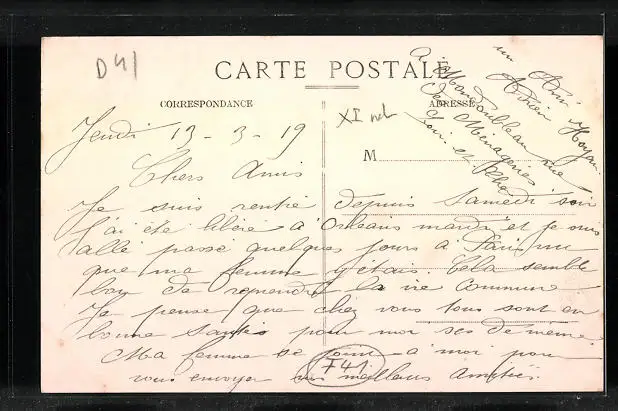 D41
CARTE POSTALE
CORRESPONDANCE
ADRESSE
XI
M
Jeudi 13-3-19
Chers Amis
Je suis rentré depuis samedi soir
j'ai été libéré à Orléans mardi et je suis
allé passé quelques jours à Paris vu
que ma femme y était. Cela semble
bon de reprendre la vie commune
Je pense que chez vous tous sont en
bonne santés pour moi ses de meme.
Ma femme se joint a moi pour
vous envoyer nos meilleurs amitiés.
F41
un Ami
Adrien
rue
des Ménageries